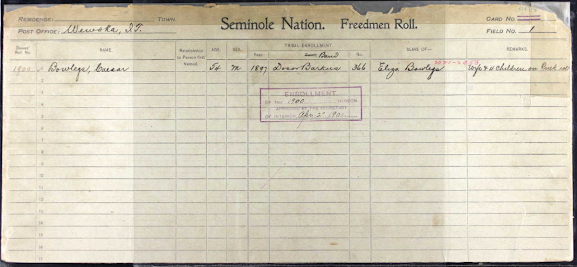 RESIDENCE: TOWN.
POST OFFICE: Wewoka, I.T.
Seminole Nation. Freedmen Roll.
CARD NO.
FIELD NO. 1
Roll No. NAME. Relationship to Person first Named. AGE. SEX. TRIBAL ENROLLMENT. Year. Band No. NAME OF— REMARKS.
1900 1 Bowlegs, Caesar 54 M 1897 Dosar Barkus 366 Eliza Bowlegs Wife & 4 Children on Creek roll
2
3
4
5
6
7
8
9
10
11
12
13
14
15
16
17
ENROLLMENT
OF NO. 1900 HEREON
APPROVED BY THE SECRETARY
OF INTERIOR Apr. 2, 1901